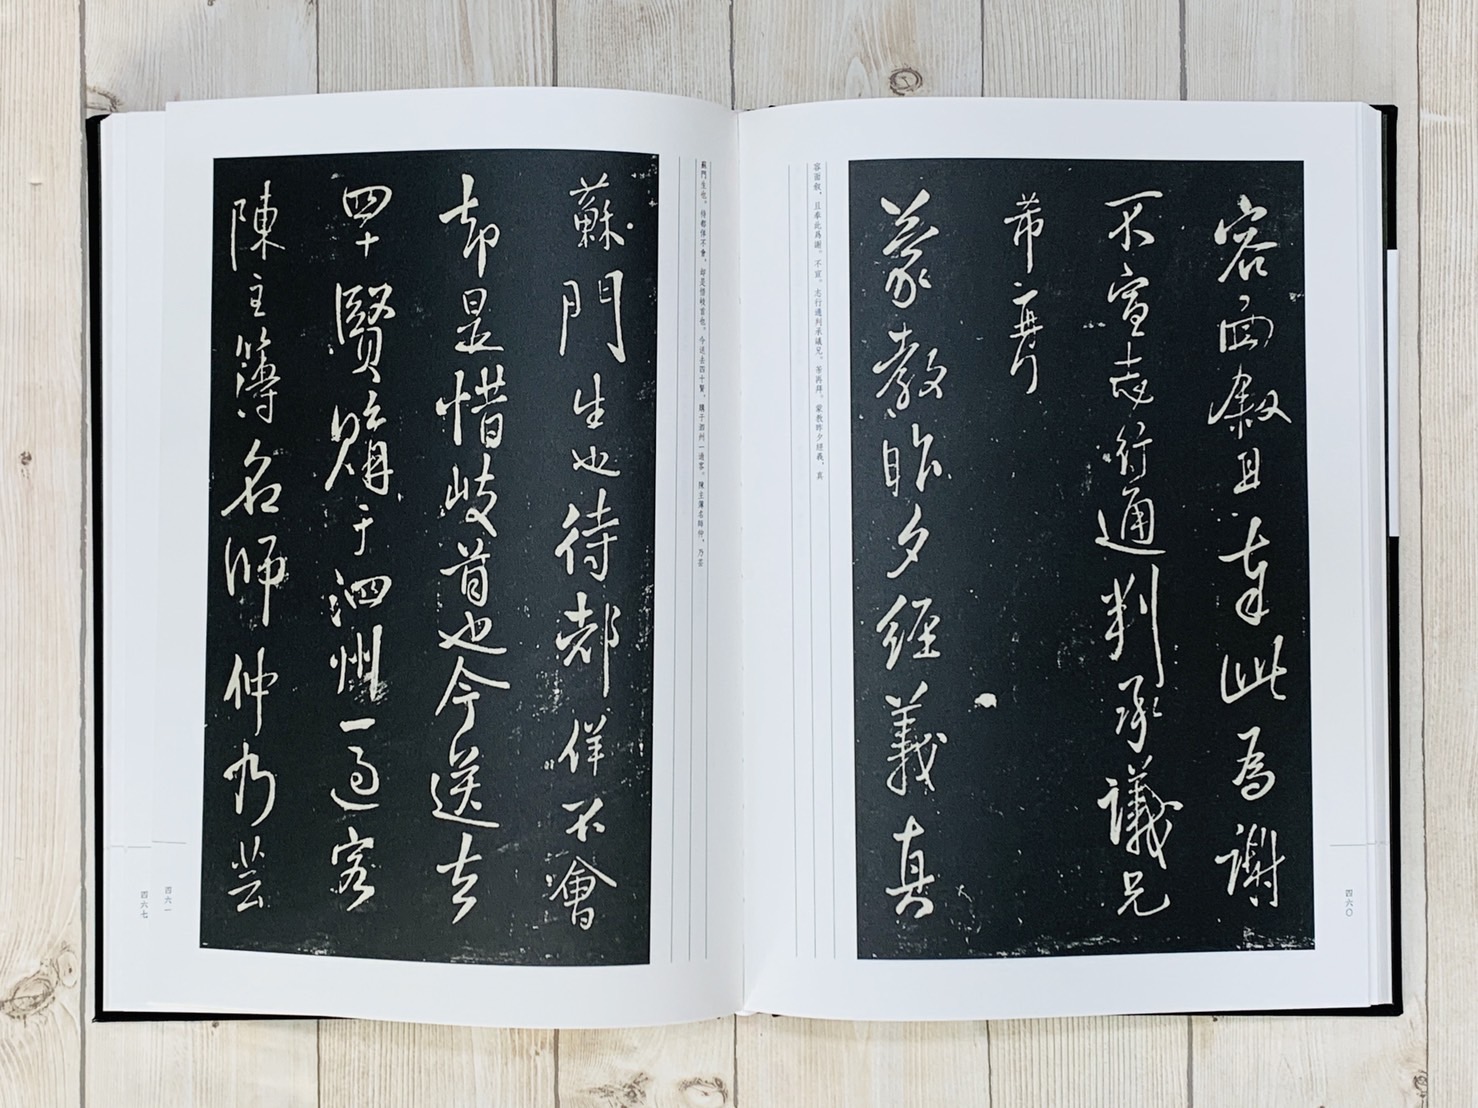 容面叙且奉此為謝
不宣志行通判承議兄
芾再拜
蒙教昨夕經義真
容面叙，且奉此爲謝。不宣。志行通判承議兄。芾再拜。蒙教昨夕經義，真
四六〇
蘇門生也，待都佯不會，却是惜岐首也。今送去四十賢，購于泗州一過客。陳主簿名師仲，乃芸
蘇門生也待都佯不會
却是惜岐首也今送去
四十賢購于泗州一過客
陳主簿名師仲乃芸
四六一
四六七